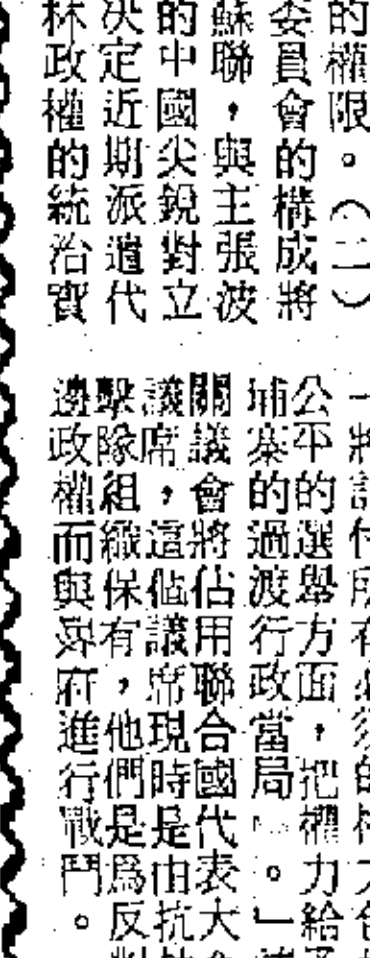 的權限。(二)
委員會的構成將
蘇聯,與主張波
的中國尖銳對立
決定近期派遣代
林政權的統治實
公平的選舉方面,把權力給
埔寨的過渡行政當局」。」
關議會將佔用聯合國代表大
議席,這個議席現時是由抗
擊隊組織保有,他們是爲反
邊政權而與 府進行戰鬥。